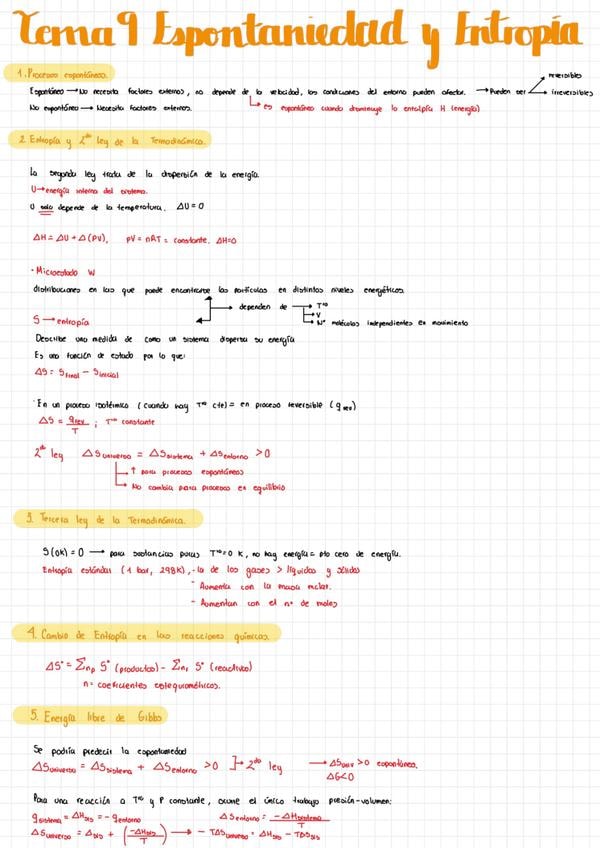 Tema 9 Espontaniedad y Entropía
1. Procesos espontáneos.
Espontáneo → No necesita factores externos, no depende de la velocidad, las condiciones del entorno pueden afectar. → Pueden ser reversibles
irreversibles
No espontáneo → Necesita factores externos. es espontáneo cuando disminuye la entalpía H (energía)
2. Entropía y 2ª ley de la Termodinámica.
La segunda ley trata de la dispersión de la energía.
U → energía interna del sistema.
U solo depende de la temperatura, ΔU = 0
ΔH = ΔU + Δ(PV), PV = nRT = constante. ΔH=0
· Microestado W
distribuciones en las que puede encontrarse las partículas en distintos niveles energéticos.
dependen de → Tª
V
Nº moléculas independientes en movimiento
S → entropía
Describe una medida de como un sistema dispersa su energía
Es una función de estado por lo que:
ΔS = S final - S inicial
· En un proceso isotérmico (cuando hay Tª cte) = en proceso reversible (q rev)
ΔS = q rev / T ; Tª constante
2ª ley ΔS universo = ΔS sistema + ΔS entorno > 0
↑ para procesos espontáneos
No cambia para procesos en equilibrio
3. Tercera ley de la Termodinámica.
S(0K) = 0 → para sustancias puras Tª=0 K, no hay energía = pto cero de energía.
Entropía estándar (1 bar, 298K), - la de los gases > líquidos y sólidos
- Aumenta con la masa molar.
- Aumentan con el nº de moles
4. Cambio de Entropía en las reacciones químicas.
ΔS° = Σnp S° (productos) - Σnr S° (reactivo)
n = coeficientes estequiométricos.
5. Energía libre de Gibbs
Se podría predecir la espontaneidad
ΔS universo = ΔS sistema + ΔS entorno > 0 ]→ 2ª ley → ΔS univ > 0 espontánea.
ΔG<0
Para una reacción a Tª y P constante, ocurre el único trabajo presión-volumen:
q sistema = ΔH sis = - q entorno ΔS entorno = -ΔH sistema / T
ΔS universo = Δ sis + (-ΔH sis / T) → - TΔS universo = ΔH sis - TΔS sis